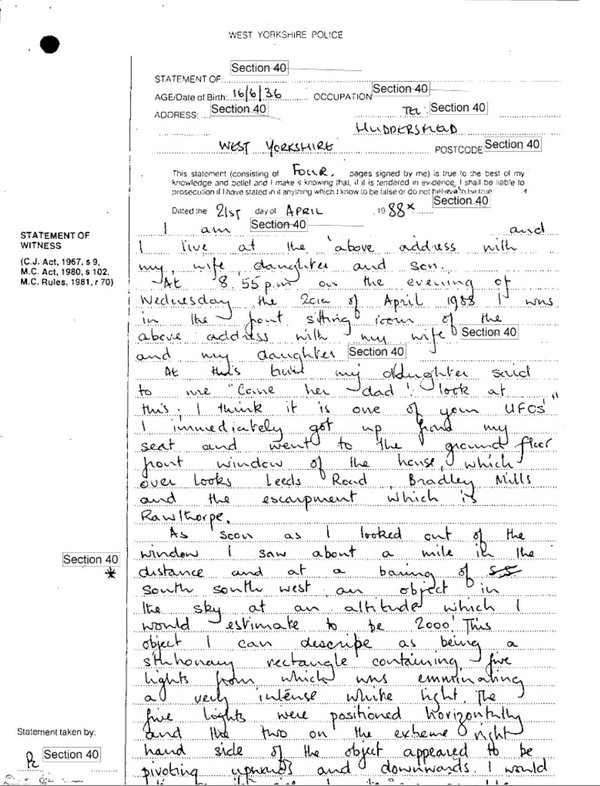 WEST YORKSHIRE POLICE
STATEMENT OF: Section 40
AGE/Date of Birth: 16/6/36 OCCUPATION Section 40
ADDRESS: Section 40 TEL: Section 40
HUDDERSFIELD
WEST YORKSHIRE POSTCODE Section 40
This statement (consisting of FOUR. pages signed by me) is true to the best of my
knowledge and belief and I make it knowing that, if it is tendered in evidence, I shall be liable to
prosecution if I have stated in it anything which I know to be false or do not believe to be true
Section 40
Dated the 21st day of APRIL 1988 x
STATEMENT OF
WITNESS
(C.J. Act, 1967, s 9,
M.C. Act, 1980, s 102,
M.C. Rules, 1981, r 70)
I am Section 40 and
I live at the above address with
my wife, daughter and son.
At 8.55 p.m on the evening of
Wednesday the of April 1988 I was
in the front sitting room of the
above address with my wife Section 40
and my daughter Section 40
At this my daughter said
to me "Come her dad! look at
this. I think it is one of your UFOS"
I immediately got up from my
seat and went to the ground floor
front window of the house, which
over looks Leeds Road, Bradley Mills
and the escarpment which is
Rawlthorpe.
As soon as I looked out of the
window I saw about a mile in the
Section 40
*
distance and at a baring of
south south west, an object in
the sky at an altitude which I
would estimate to be 2000' This
object I can describe as being a
stationary rectangle containing five
lights from which was emminating
a very intense white light. The
five lights were positioned horizontally
and the two on the extreme right
hand side of the object appeared to be
pivoting upwards and downwards. I would
Statement taken by:
Pc Section 40